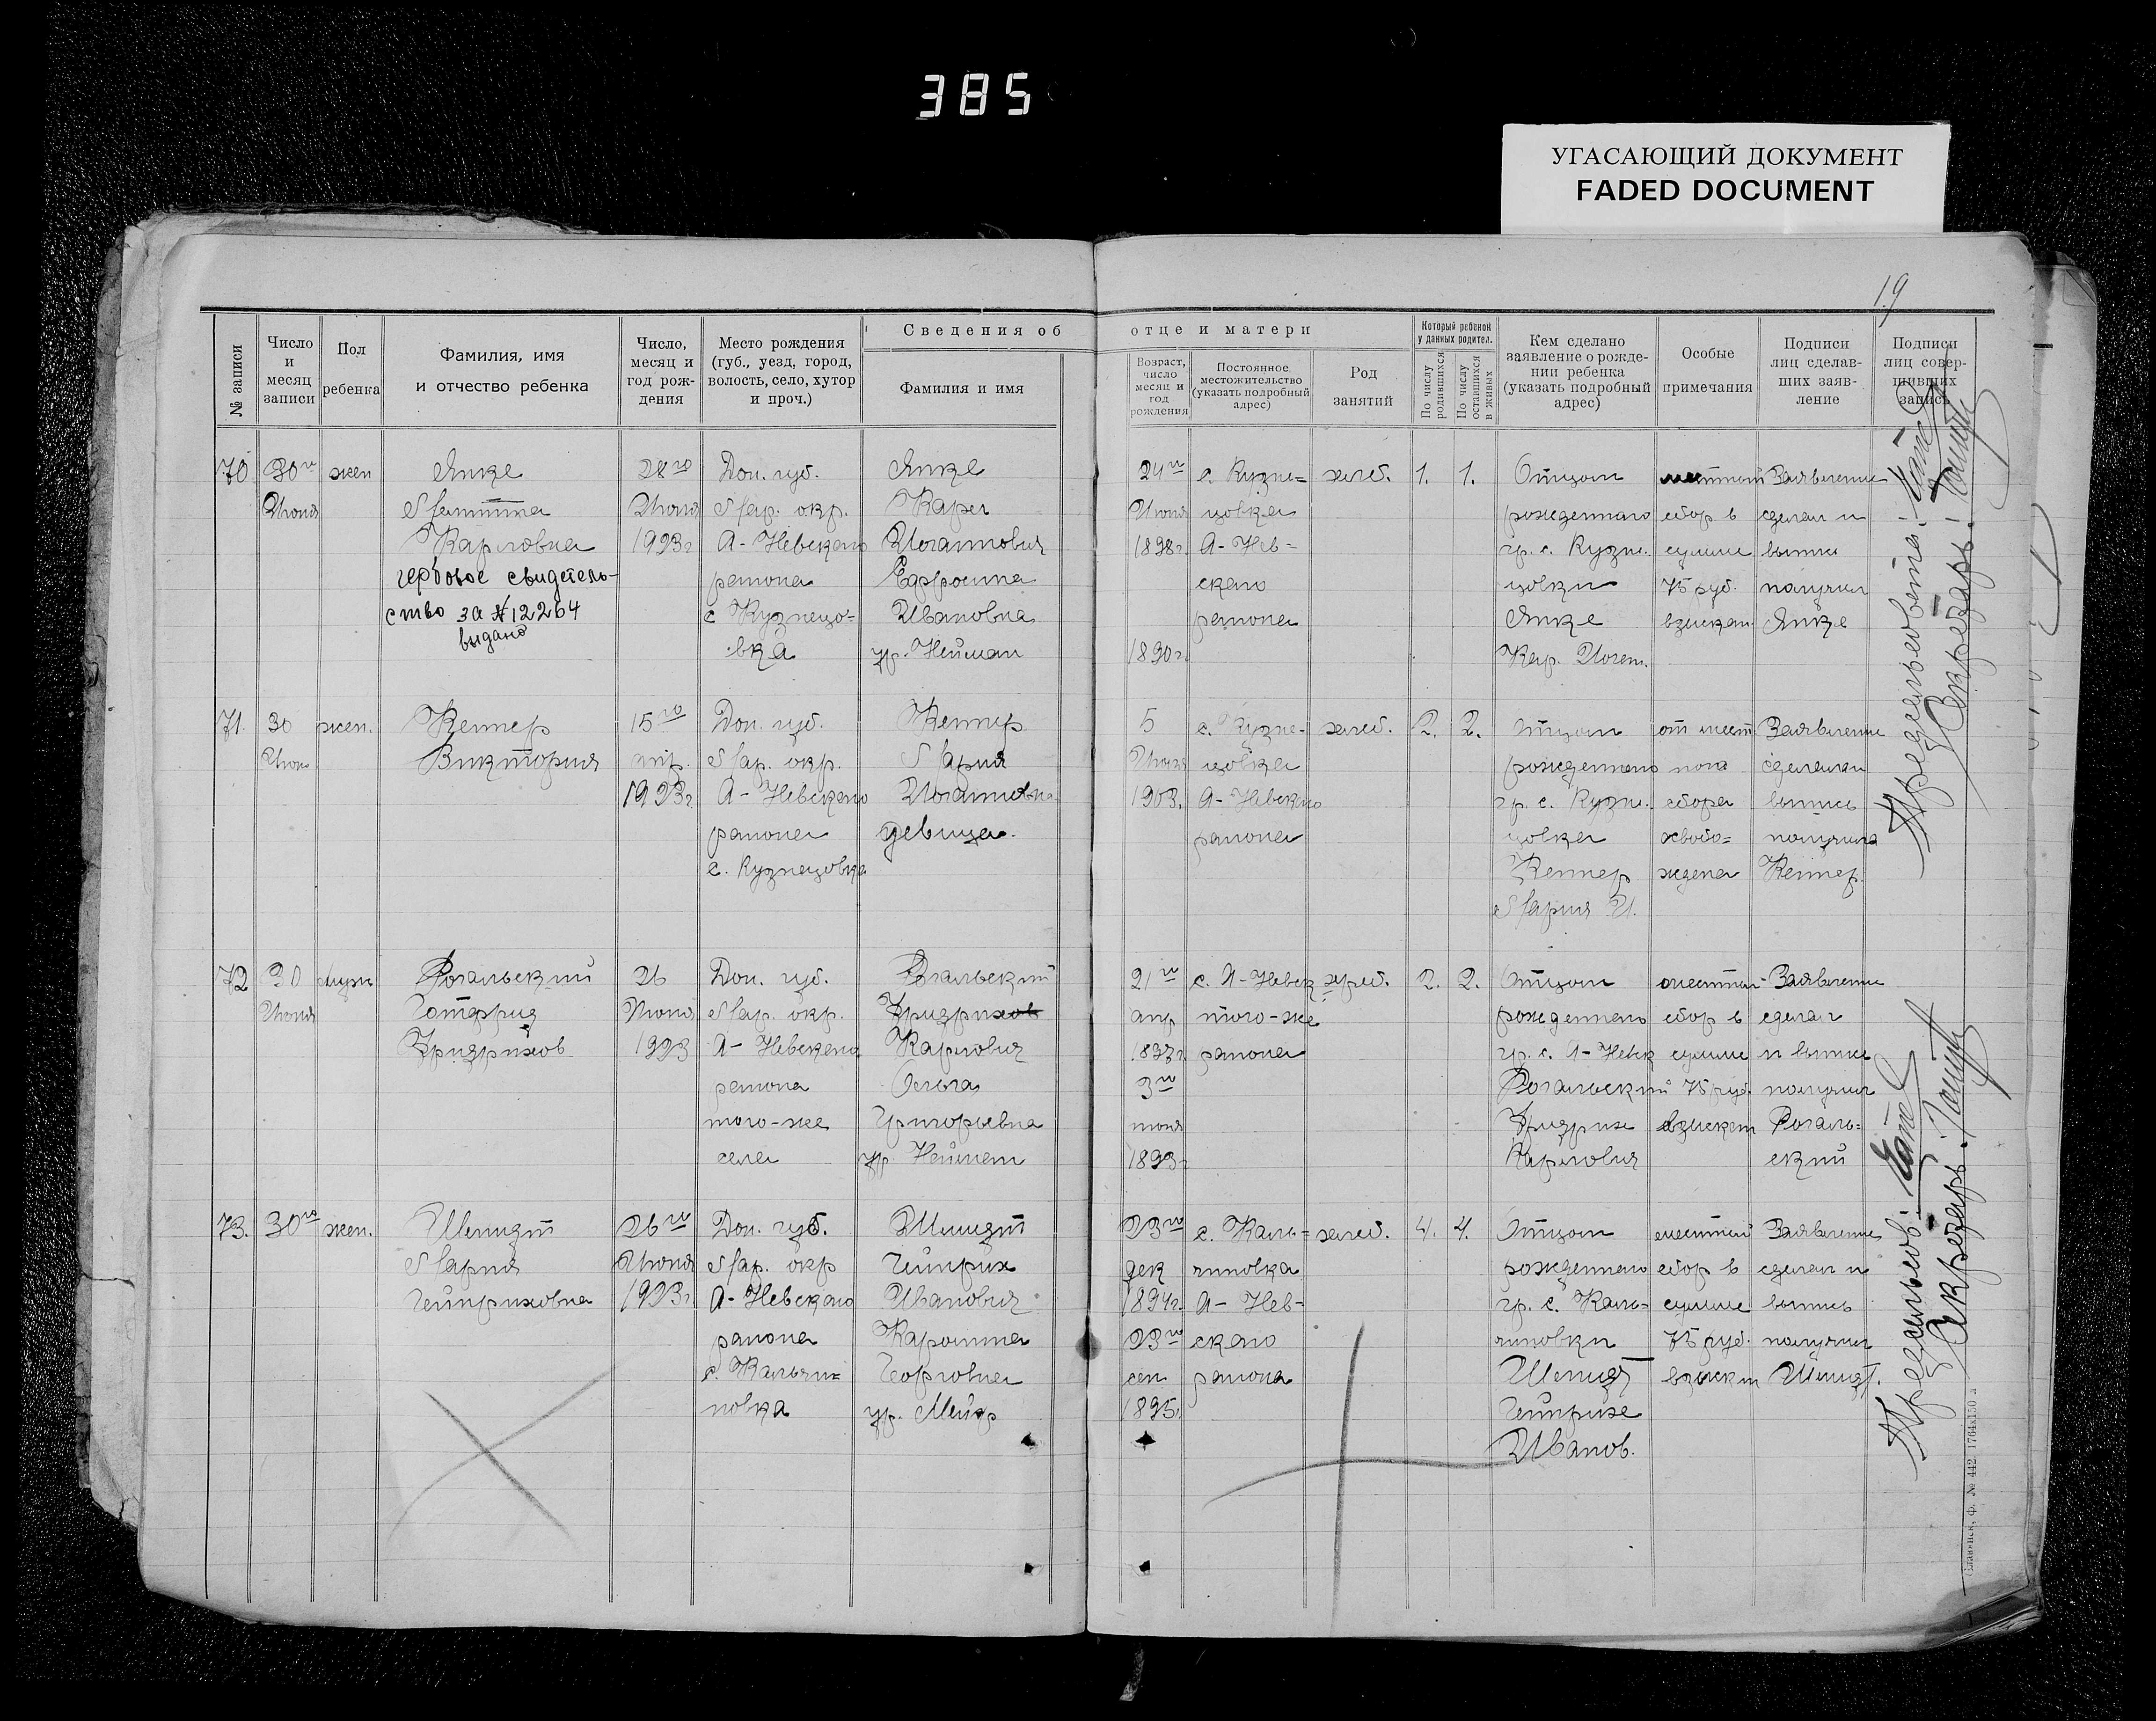 385
УГАСАЮЩИЙ ДОКУМЕНТ
FADED DOCUMENT
19
№ записи
Число и месяц записи
Пол ребенка
Фамилия, имя и отчество ребенка
Число, месяц и год рождения
Место рождения (губ., уезд, город, волость, село, хутор и проч.)
Сведения об отце и матери
Фамилия и имя
Возраст, число месяц и год рождения
Постоянное местожительство (указать подробный адрес)
Род занятий
Который ребенок у данных родител.
По числу родившихся
По числу оставшихся в живых
Кем сделано заявление о рождении ребенка (указать подробный адрес)
Особые примечания
Подписи лиц сделавших заявление
Подписи лиц совершивших запись
70
30го
Июня
жен
Янке
Карловна
гербовое свидетель-
ство за #12264
выдано
28го
Июня
1923г
Дон. губ.
Мар. окр.
А-Невского
района
с Кузнецо=
вка
Янке
Карл
Иоганнович
Ефросина
Ивановна
ур. Нейман
24го
Июня
1898г.
1890г.
с. Кузне=
цовка
А-Нев-
ского
района
хлеб.
1.
1.
Отцом
рожденного
гр. с. Кузне.
цовки
Янке
Кар. Иоган.
местный
сбор в
сумме
75 руб.
взыскан
Заявление
сделал и
получил
Янке
71.
30
Июня
жен.
Кеннер
Виктория
15го
апр.
1923г.
Дон. губ.
Мар. окр.
А-Невского
района
с. Кузнецовка
Кеннер
Мария
Иогановна
девица.
5
Июня
1903.
с. Кузне-
цовка
А-Невского
района
хлеб.
2.
2.
Отцом
рожденного
гр. с. Кузне.
цовка
Кеннер
Мария И.
от мест
ного
сбора
освобо=
ждена
Заявление
сделала
выпись
получила
Кеннер.
72
30
Июня
мужс
Рогальский
Готфрид
Фридрихов
26
Июня
1923
Дон. губ.
Мар. окр.
А-Невского
района
того-же
села
Рогальский
Фридрих
Карлович
Ольга
Григорьевна
ур. Нейман
21го
апр
3го
июня
1893г
с. А-Невск
того-же
района
хлеб.
2.
2.
Отцом
рожденного
гр. с. А-Невск
Рогальский
Фридрих
Карлович
местный
сбор в
сумме
75 руб.
взыскан
Заявление
сделал
и выпись
получил
Рогаль=
ский
73.
30го
жен.
Шмидт
Мария
Гейнриховна
26го
Июня
1923г.
Дон. губ.
Мар. окр
А-Невского
района
с. Кальчи=
новка
Шмидт
Гейнрих
Иванович
Каролина
Георговна
ур. Мейер
23го
дек
1894г.
23го
сен
1895г.
с. Каль=
чиновка
А-Нев-
ского
района
хлеб.
4.
4.
Отцом
рожденного
гр. с. Каль=
чиновки
Шмидт
Гейнрих
Иванов.
местный
сбор в
сумме
75 руб.
взыскан
Заявление
сделал и
выпись
получил
Шмидт.
Председ. сельсовета:
Секретарь:
Пред. сельсов:
Секретарь:
Славянск, ф. № 442. 1764х150 а